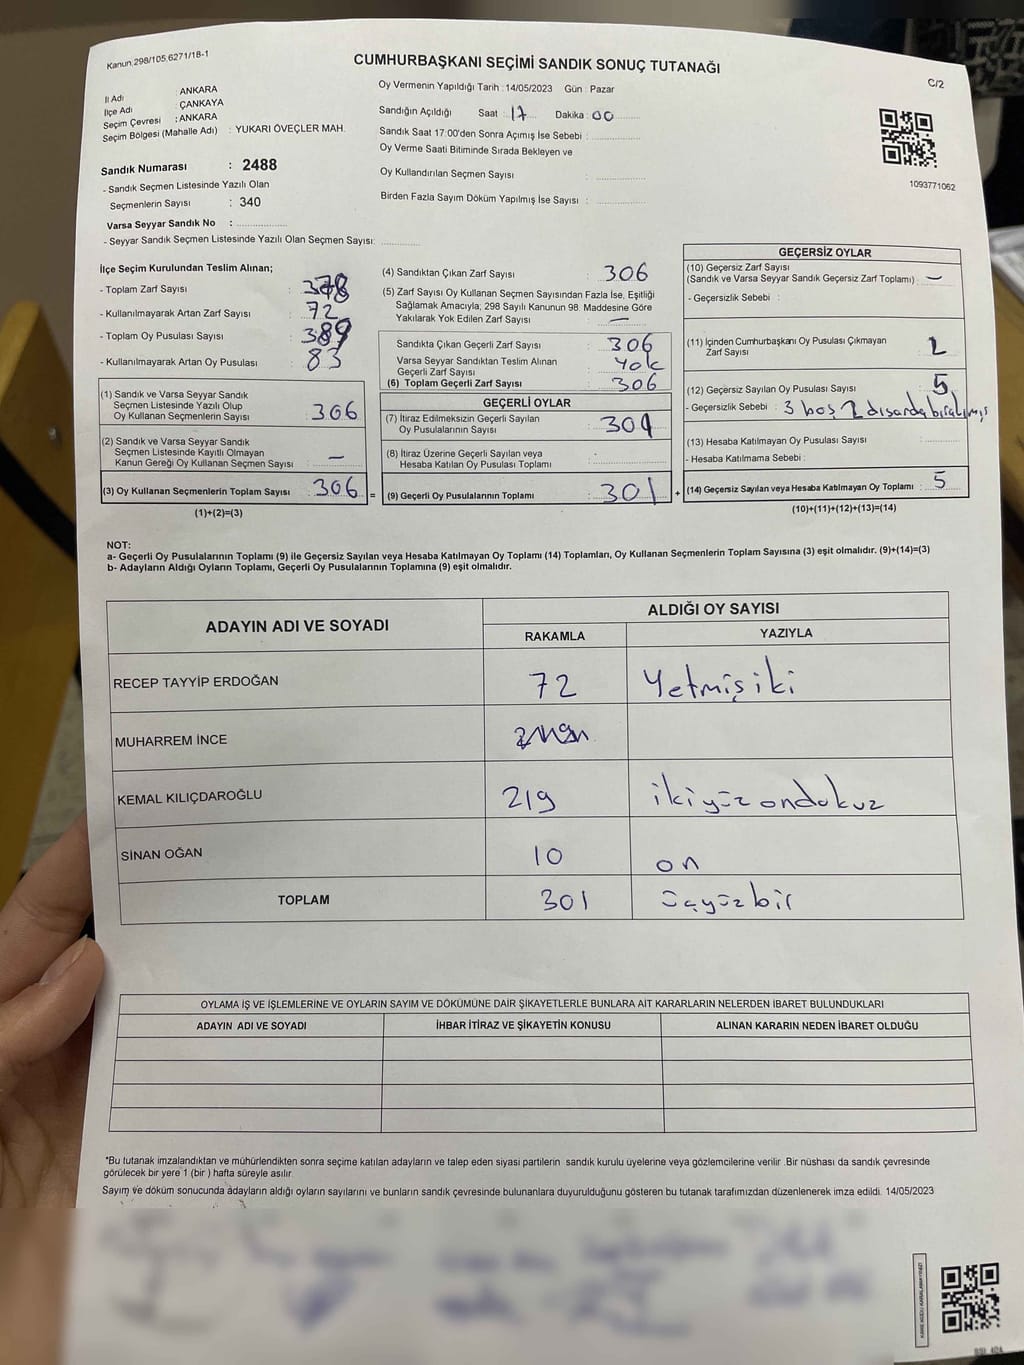 Kanun 298/105.6271/1B-1
CUMHURBAŞKANI SEÇİMİ SANDIK SONUÇ TUTANAĞI
C/2
İl Adı : ANKARA
İlçe Adı : ÇANKAYA
Seçim Çevresi : ANKARA
Seçim Bölgesi (Mahalle Adı) : YUKARI ÖVEÇLER MAH.
Oy Vermenin Yapıldığı Tarih : 14/05/2023 Gün : Pazar
Sandığın Açıldığı Saat : 17 Dakika : 00
Sandık Saat 17:00'den Sonra Açımış İse Sebebi :
Oy Verme Saati Bitiminde Sırada Bekleyen ve
Oy Kullandırılan Seçmen Sayısı :
Birden Fazla Sayım Döküm Yapılmış İse Sayısı :
1093771062
Sandık Numarası : 2488
- Sandık Seçmen Listesinde Yazılı Olan
Seçmenlerin Sayısı : 340
Varsa Seyyar Sandık No :
- Seyyar Sandık Seçmen Listesinde Yazılı Olan Seçmen Sayısı:
İlçe Seçim Kurulundan Teslim Alınan;
- Toplam Zarf Sayısı : 378
- Kullanılmayarak Artan Zarf Sayısı : 72
- Toplam Oy Pusulası Sayısı : 389
- Kullanılmayarak Artan Oy Pusulası : 83
(1) Sandık ve Varsa Seyyar Sandık
Seçmen Listesinde Yazılı Olup
Oy Kullanan Seçmenlerin Sayısı : 306
(2) Sandık ve Varsa Seyyar Sandık
Seçmen Listesinde Kayıtlı Olmayan
Kanun Gereği Oy Kullanan Seçmen Sayısı : –
(3) Oy Kullanan Seçmenlerin Toplam Sayısı : 306 =
(1)+(2)=(3)
(4) Sandıktan Çıkan Zarf Sayısı : 306
(5) Zarf Sayısı Oy Kullanan Seçmen Sayısından Fazla İse, Eşitliği
Sağlamak Amacıyla, 298 Sayılı Kanunun 98. Maddesine Göre
Yakılarak Yok Edilen Zarf Sayısı : –
Sandıkta Çıkan Geçerli Zarf Sayısı : 306
Varsa Seyyar Sandıktan Teslim Alınan
Geçerli Zarf Sayısı : Yok
(6) Toplam Geçerli Zarf Sayısı : 306
GEÇERLİ OYLAR
(7) İtiraz Edilmeksizin Geçerli Sayılan
Oy Pusulalarının Sayısı : 301
(8) İtiraz Üzerine Geçerli Sayılan veya
Hesaba Katılan Oy Pusulası Toplamı :
(9) Geçerli Oy Pusulalarının Toplamı : 301 +
GEÇERSİZ OYLAR
(10) Geçersiz Zarf Sayısı
(Sandık ve Varsa Seyyar Sandık Geçersiz Zarf Toplamı) : –
- Geçersizlik Sebebi :
(11) İçinden Cumhurbaşkanı Oy Pusulası Çıkmayan
Zarf Sayısı :
(12) Geçersiz Sayılan Oy Pusulası Sayısı : 5
- Geçersizlik Sebebi : 3 boş 2 dısarda bıralımış
(13) Hesaba Katılmayan Oy Pusulası Sayısı :
- Hesaba Katılmama Sebebi :
(14) Geçersiz Sayılan veya Hesaba Katılmayan Oy Toplamı : 5
(10)+(11)+(12)+(13)=(14)
NOT:
a- Geçerli Oy Pusulalarının Toplamı (9) ile Geçersiz Sayılan veya Hesaba Katılmayan Oy Toplamı (14) Toplamları, Oy Kullanan Seçmenlerin Toplam Sayısına (3) eşit olmalıdır. (9)+(14)=(3)
b- Adayların Aldığı Oyların Toplamı, Geçerli Oy Pusulalarının Toplamına (9) eşit olmalıdır.
ADAYIN ADI VE SOYADI
ALDIĞI OY SAYISI
RAKAMLA YAZIYLA
RECEP TAYYİP ERDOĞAN 72 Yetmiş iki
MUHARREM İNCE
KEMAL KILIÇDAROĞLU 219 ikiyüz ondokuz
SİNAN OĞAN 10 on
TOPLAM 301 üçyüzbir
OYLAMA İŞ VE İŞLEMLERİNE VE OYLARIN SAYIM VE DÖKÜMÜNE DAİR ŞİKAYETLERLE BUNLARA AİT KARARLARIN NELERDEN İBARET BULUNDUKLARI
ADAYIN ADI VE SOYADI İHBAR İTİRAZ VE ŞİKAYETİN KONUSU ALINAN KARARIN NEDEN İBARET OLDUĞU
*Bu tutanak imzalandıktan ve mühürlendikten sonra seçime katılan adayların ve talep eden siyasi partilerin sandık kurulu üyelerine veya gözlemcilerine verilir .Bir nüshası da sandık çevresinde
görülecek bir yere 1 (bir ) hafta süreyle asılır.
Sayım ve döküm sonucunda adayların aldığı oyların sayılarını ve bunların sandık çevresinde bulunanlara duyurulduğunu gösteren bu tutanak tarafımızdan düzenlenerek imza edildi. 14/05/2023